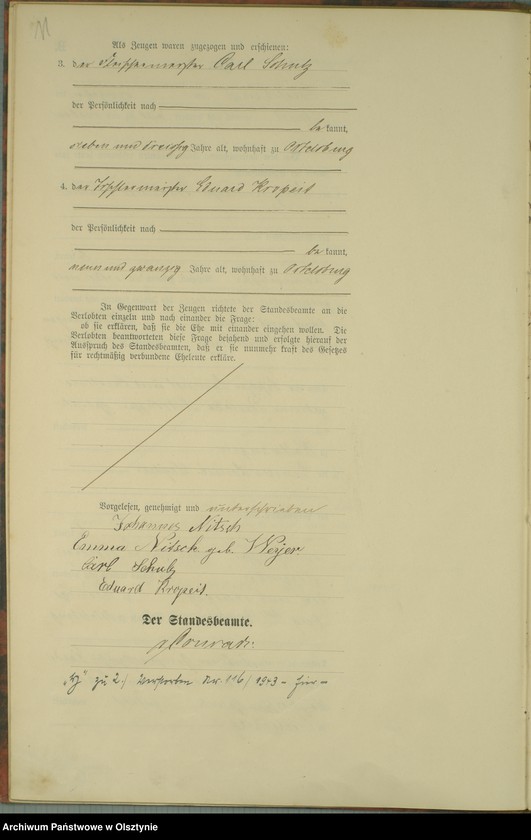 Als Zeugen waren zugezogen und erschienen:
3. der Fleischermeister Carl Schulz
der Persönlichkeit nach
be kannt,
sieben und dreissig Jahre alt, wohnhaft zu Ortelsburg
4. der Tischlermeister Eduard Kropeit
der Persönlichkeit nach
be kannt,
neun und zwanzig Jahre alt, wohnhaft zu Ortelsburg
In Gegenwart der Zeugen richtete der Standesbeamte an die
Verlobten einzeln und nach einander die Frage:
ob sie erklären, daß sie die Ehe mit einander eingehen wollen. Die
Verlobten beantworteten diese Frage bejahend und erfolgte hierauf der
Ausspruch des Standesbeamten, daß er sie nunmehr kraft des Gesetzes
für rechtmäßig verbundene Eheleute erkläre.
Vorgelesen, genehmigt und unterschrieben
Johannes Nitsch
Emma Nitsch geb. Weyer.
Carl Schulz
Eduard Kropeit.
Der Standesbeamte.
Conrad.
zu 2 / Verstorben Nr. 116 / 1943 - hier -
Archiwum Państwowe w Olsztynie